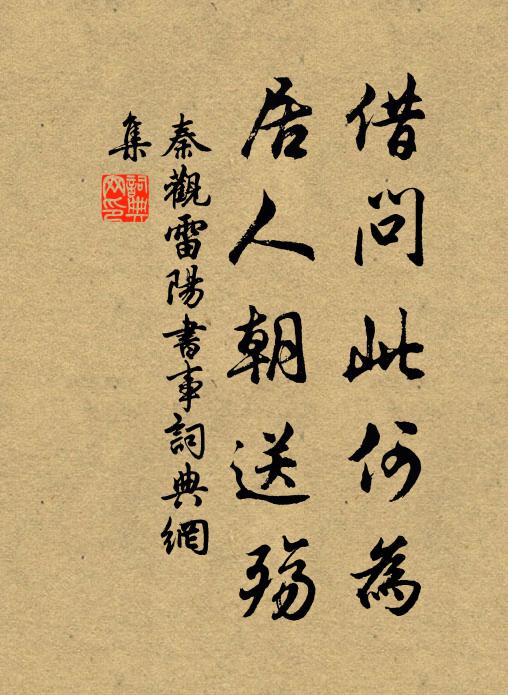 借問此何為
居人朝送殤
秦觀雷陽書事詞典網
集
詞典
網印